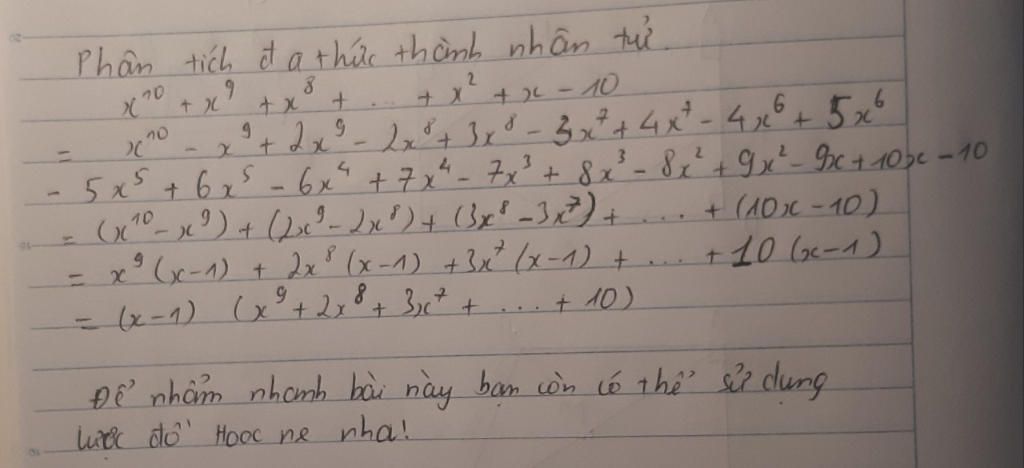 Phân tích đa thức thành nhân tử.
x¹⁰ + x⁹ + x⁸ + ... + x² + x - 10
= x¹⁰ - x⁹ + 2x⁹ - 2x⁸ + 3x⁸ - 3x⁷ + 4x⁷ - 4x⁶ + 5x⁶
- 5x⁵ + 6x⁵ - 6x⁴ + 7x⁴ - 7x³ + 8x³ - 8x² + 9x² - 9x + 10x - 10
= (x¹⁰ - x⁹) + (2x⁹ - 2x⁸) + (3x⁸ - 3x⁷) + .... + (10x - 10)
= x⁹ (x-1) + 2x⁸ (x-1) + 3x⁷ (x-1) + ... + 10 (x-1)
= (x-1) (x⁹ + 2x⁸ + 3x⁷ + ... + 10)
Để nhẩm nhanh bài này bạn còn có thể sử dụng
lược đồ Hooc ne nha!